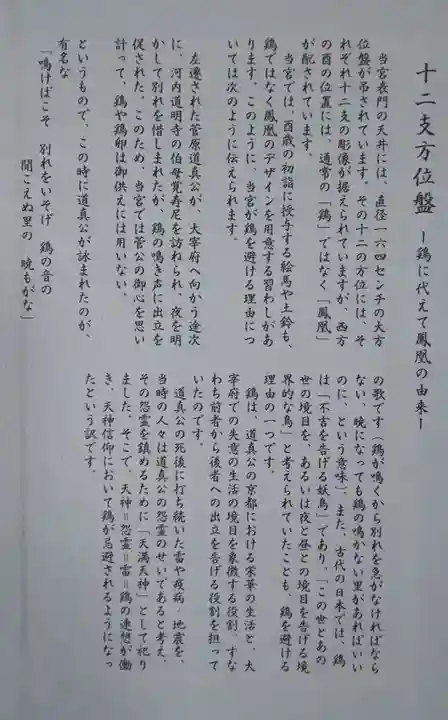 十二支方位盤 ー鶏に代えて鳳凰の由来ー
当宮表門の天井には、直径一六四センチの大方
位盤が吊されています。その十二の方位には、そ
れぞれ十二支の彫像が据えられていますが、西方
の酉の位置には、通常の「鶏」ではなく「鳳凰」
が配されています。
当宮では、酉歳の初詣に授与する絵馬や土鈴も、
鶏ではなく鳳凰のデザインを用意する習わしがあ
ります。このように、当宮が鶏を避ける理由につ
いては次のように伝えられます。
左遷された菅原道真公が、大宰府へ向かう途次
に、河内道明寺の伯母覚寿尼を訪ねられ、夜を明
かして別れを惜しまれたが、鶏の鳴き声に出立を
促された。このため、当宮では菅公の御心を思い
計って、鶏や鶏卵は御供えには用いない、
というもので、この時に道真公が詠まれたのが、
有名な
「鳴けばこそ 別れをいそげ 鶏の音の
聞こえぬ里の 暁もがな」
の歌です(鶏が鳴くから別れを急がなければなら
ない、暁になっても鶏の鳴かない里があればいい
のに、という意味)。また、古代の日本では、鶏
は「不吉を告げる妖鳥」であり、「この世とあの
世の境目を、あるいは夜と昼との境目を告げる境
界的な鳥」と考えられていたことも、鶏を避ける
理由の一つです。
鶏は、道真公の京都における栄華の生活と、大
宰府での失意の生活の境目を象徴する役割、すな
わち前者から後者への出立を告げる役割を担って
いたのです。
道真公の死後に打ち続いた雷や疫病・地震を、
当時の人々は道真公の怨霊のせいであると考え、
その怨霊を鎮めるために「天満天神」として祀り
ました。そこで、天神=怨霊=雷=鶏の連想が働
き、天神信仰において鶏が忌避されるようになっ
たという訳です。